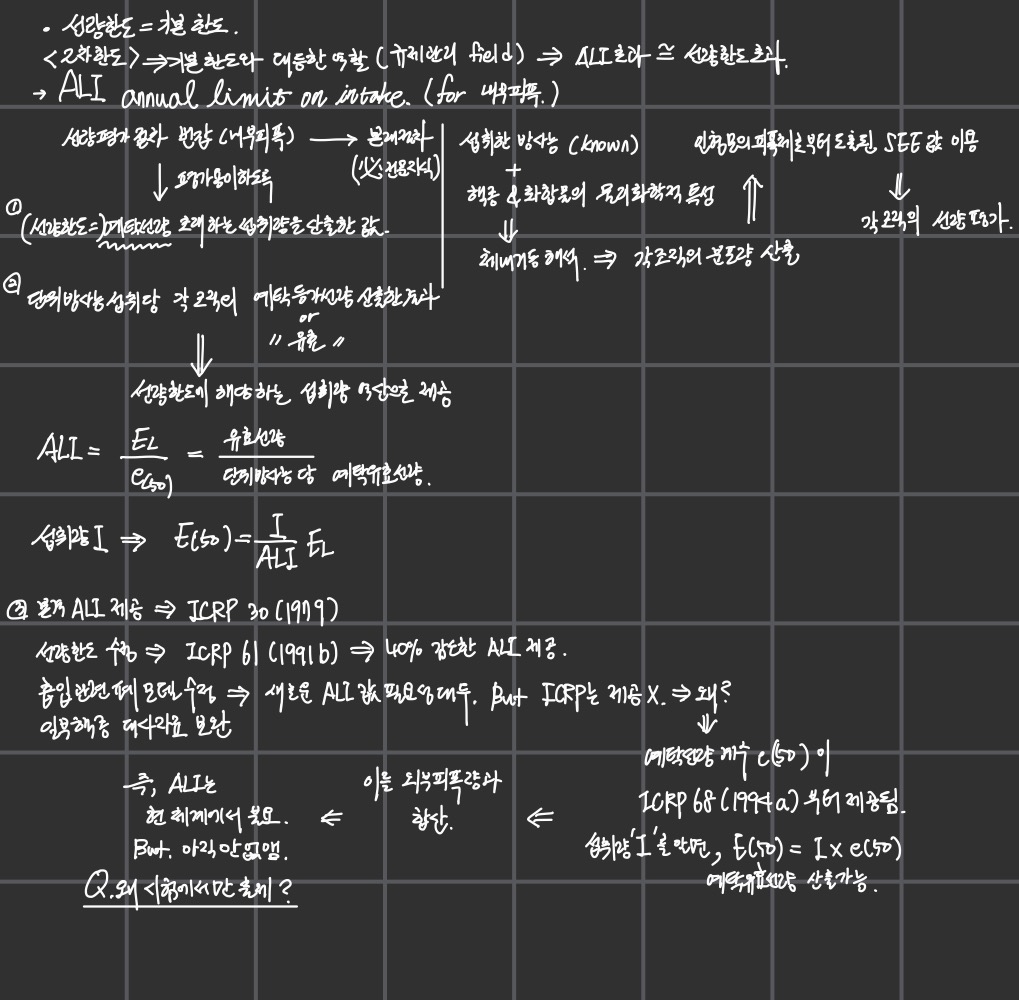 • 선량한도 = 기본 한도.
<2차한도> ⇒ 기본한도와 대등한 역할 (규제관리 field) ⇒ ALI초과 ≅ 선량한도초과.
→ ALI annual limit on intake. (for 내부피폭.)
선량평가 결과 번잡 (내부피폭) → 문제점화
(必: 전문지식)
↓ 평가용이하도록
① (선량한도=)예탁선량 초래하는 섭취량을 산출한 값.
② 단위방사능 섭취당 각 조직의 예탁등가선량 산출한 결과
or
〃 유효 〃
⇓
선량한도에 해당하는 섭취량 역산으로 제공
섭취한 방사능 (known)
+
핵종 & 화합물의 물리화학적 특성
⇓
체내거동해석. ⇒ 각조직의 분포량 산출
⇑
인형모의피폭체로부터 도출된, SEE값 이용
⇓
각 조직의 선량평가.
ALI = E_L / e(50) = 유효선량 / 단위방사능 당 예탁유효선량.
섭취량 I ⇒ E(50) = I / ALI E_L
③ 본격 ALI 제공 ⇒ ICRP 30 (1979)
선량한도 수정 ⇒ ICRP 61 (1991b) ⇒ 40% 감소한 ALI 제공.
흡입관련 폐 모델수정 ⇒ 새로운 ALI 값 필요성대두. But ICRP는 제공 X. ⇒ 왜?
일부핵종 대사자료 보완
⇓
예탁선량 계수 e(50) 이
ICRP 68 (1994a) 부터 제공됨.
섭취량 'I'를 알면, E(50) = I × e(50)
예탁유효선량 산출가능.
⇐
이를 외부피폭량과
합산.
⇐
즉, ALI는
현 체계에서 불요.
But. 아직 안없앰.
Q. 왜 시험에서만 출제?